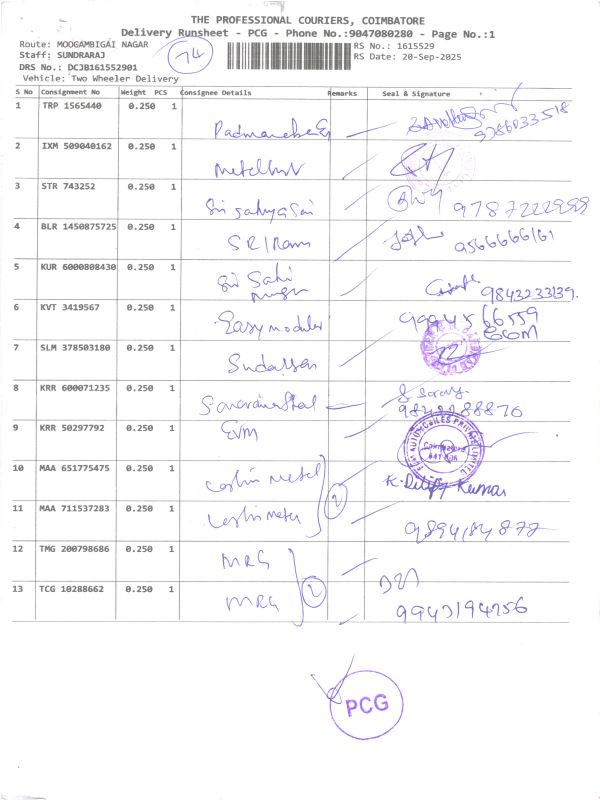 THE PROFESSIONAL COURIERS, COIMBATORE
Delivery Runsheet - PCG - Phone No.:9047080280 - Page No.:1
Route: MOOGAMBIGAI NAGAR 74 RS No.: 1615529
Staff: SUNDRARAJ RS Date: 20-Sep-2025
DRS No.: DCJB161552901
Vehicle: Two Wheeler Delivery
S No Consignment No Weight PCS Consignee Details Remarks Seal & Signature
1 TRP 1565440 0.250 1
2 IXM 509040162 0.250 1
3 STR 743252 0.250 1
Sri Sathya Sai
4 BLR 1450875725 0.250 1
SRI Ram 9566666161
5 KUR 6000808430 0.250 1
Sri Saki 9843233139.
6 KVT 3419567 0.250 1
Easy moduler 9994566559
7 SLM 378503180 0.250 1
8 KRR 600071235 0.250 1
9 KRR 50297792 0.250 1
EVM
AUTOMOBILES PRIVATE LIMITED
Coimbatore
10 MAA 651775475 0.250 1
K. Dilip Kumar
11 MAA 711537283 0.250 1
2
9894184877
12 TMG 200798686 0.250 1
MRG
13 TCG 10288662 0.250 1
MRG 2 9943194256
PCG